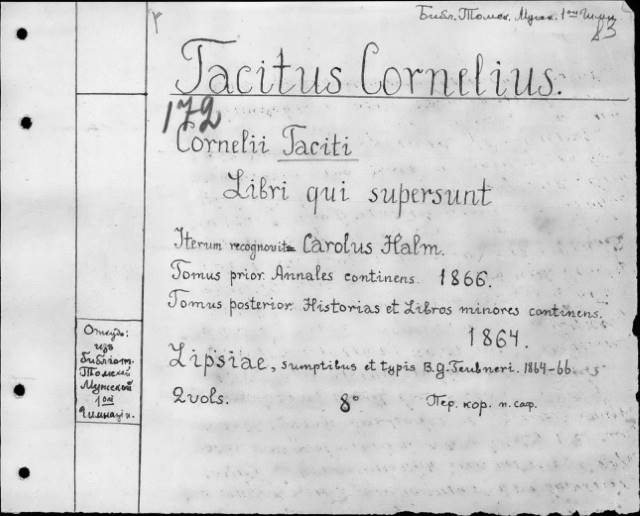 Библ. Томск. Мужск. 1ой Гимн.
83
Tacitus Cornelius.
172
Cornelii Taciti
Libri qui supersunt
Iterum recognovit Carolus Halm.
Tomus prior. Annales continens. 1866.
Tomus posterior. Historias et Libros minores continens.
1864.
Lipsiae, sumptibus et typis B.G. Teubneri. 1864-66.
2 vols. 8° Пер. кор. п. саф.
Откуда:
изъ
библіот.
Томской
Мужской
1ой
Гимназіи.